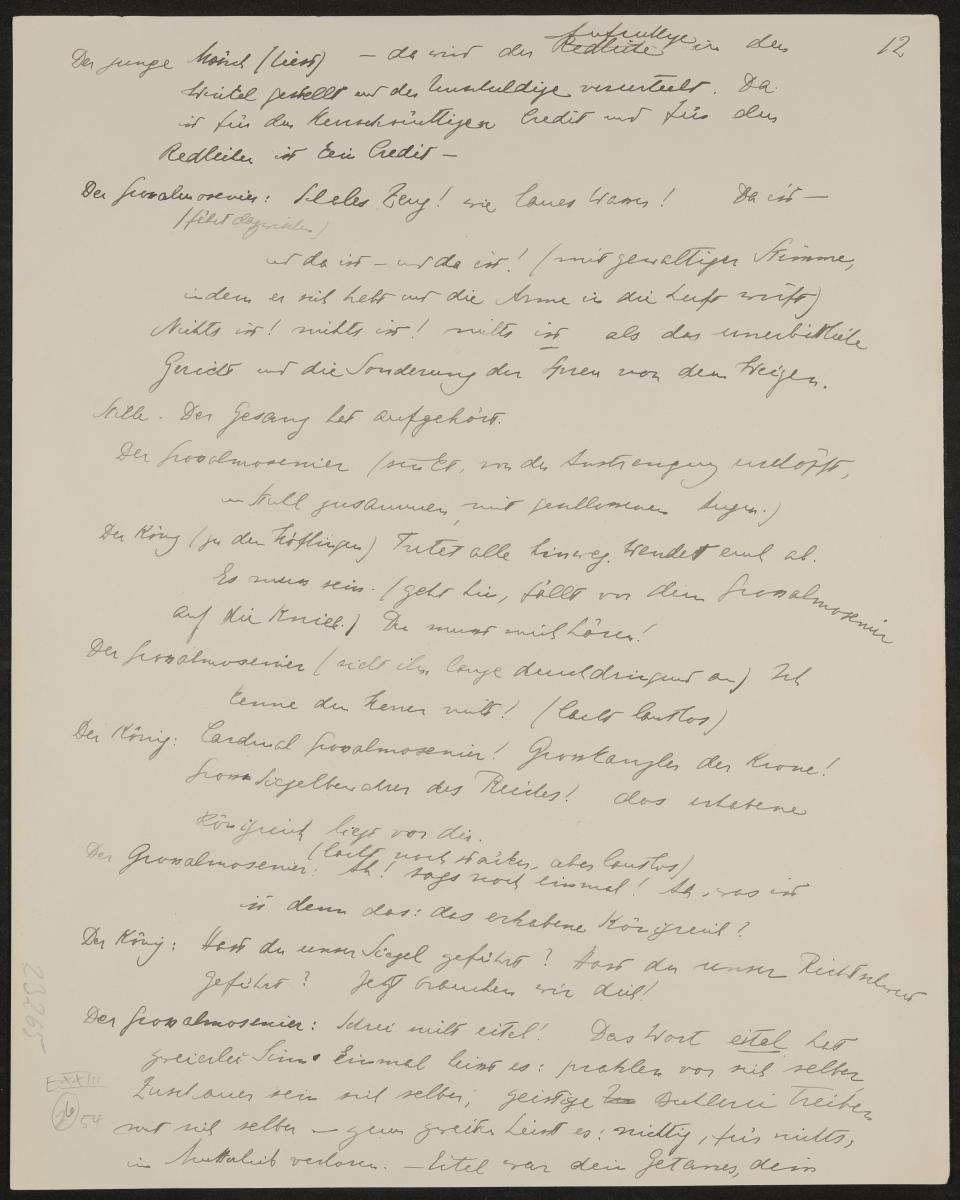 12
Der junge Mönch (liest) – da wird der Aufrichtige in den
Winkel gestellt und der Unschuldige verurteilt. Da
ist für den Credit und für den
Redlichen ist kein Credit –
Der Grossalmosenier: Schales Zeug! wie laues Wasser! Da ist –
(fährt dazwischen)
und da ist – und da ist! (mit gewaltiger Stimme,
indem er sich hebt und die Arme in die Luft wirft)
Nichts ist! nichts ist! nichts ist als das unerbittliche
Gericht und die Sonderung der Spreu von dem Weizen.
Stille. Der Gesang hat aufgehört.
Der Grossalmosenier (sinkt, von der Anstrengung erschöpft,
im Stuhl zusammen, mit geschlossenen Augen.)
Der König (zu den Höflingen) Tretet alle hinweg. Wendet euch ab.
Es muss sein. (geht hin, fällt vor dem Grossalmosenier
auf die Kniee.) Du musst mich hören!
Der Grossalmosenier (sieht ihn lange durchdringend an) Ich
kenne den Herrn nicht! (lacht lautlos)
Der König: Cardinal Grossalmosenier! Grosskanzler der Krone!
Grosssiegelbewahrer des Reiches! das erhabene
Königreich liegt vor dir.
(lacht noch stärker, aber lautlos)
Der Grossalmosenier: Ah! sags noch einmal! Ah, was ist
ist denn das: das erhabene Königreich?
Der König: Hast du unser Siegel geführt? Hast du unser Richtschwert
geführt? Jetzt brauchen wir dich!
Der Grossalmosenier: Schrei nicht eitel! Das Wort eitel hat
zweierlei Sinn. Einmal heisst es: prahlen vor sich selber,
Zuschauer sein sich selber, geistige Buhlerei treiben
mit sich selber – zum zweiten heisst es: nichtig, für nichts,
im Mutterleib verloren. – Eitel war dein Getanes, dein
23265
E XXIII
26 54